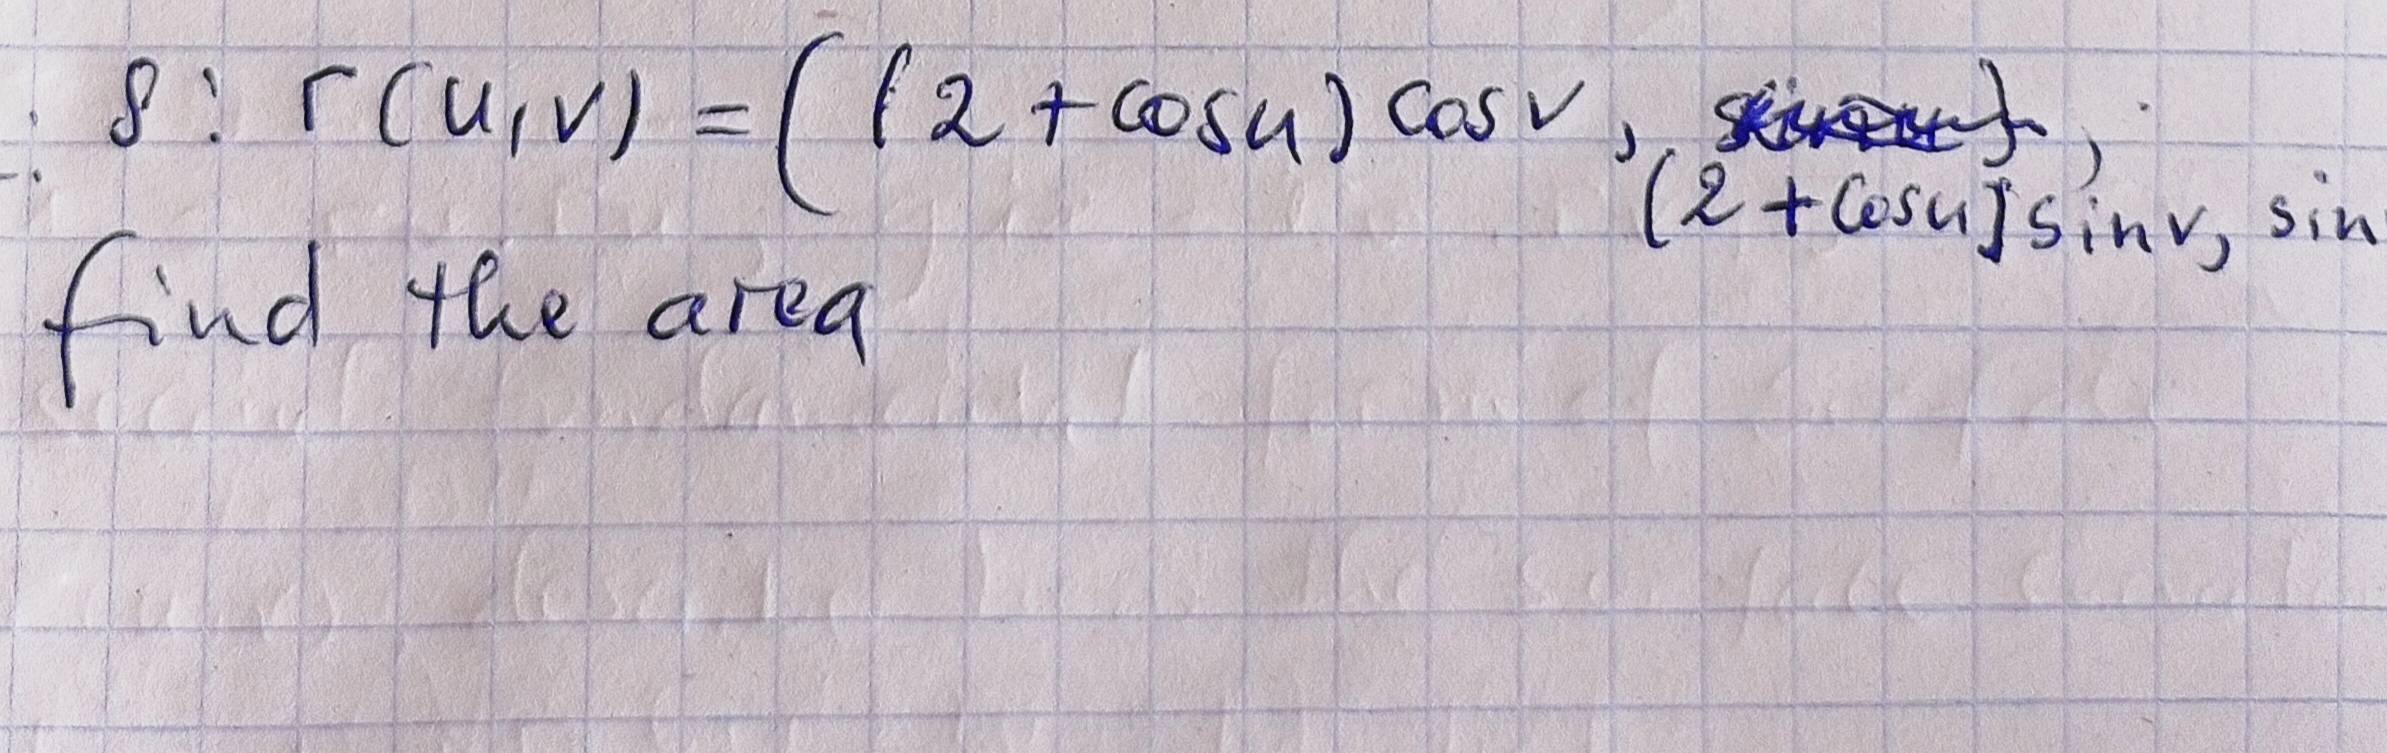 S: r(u,v) = ((2+cosu) cosv, 
(2+cosu)sinv, sin
find the area